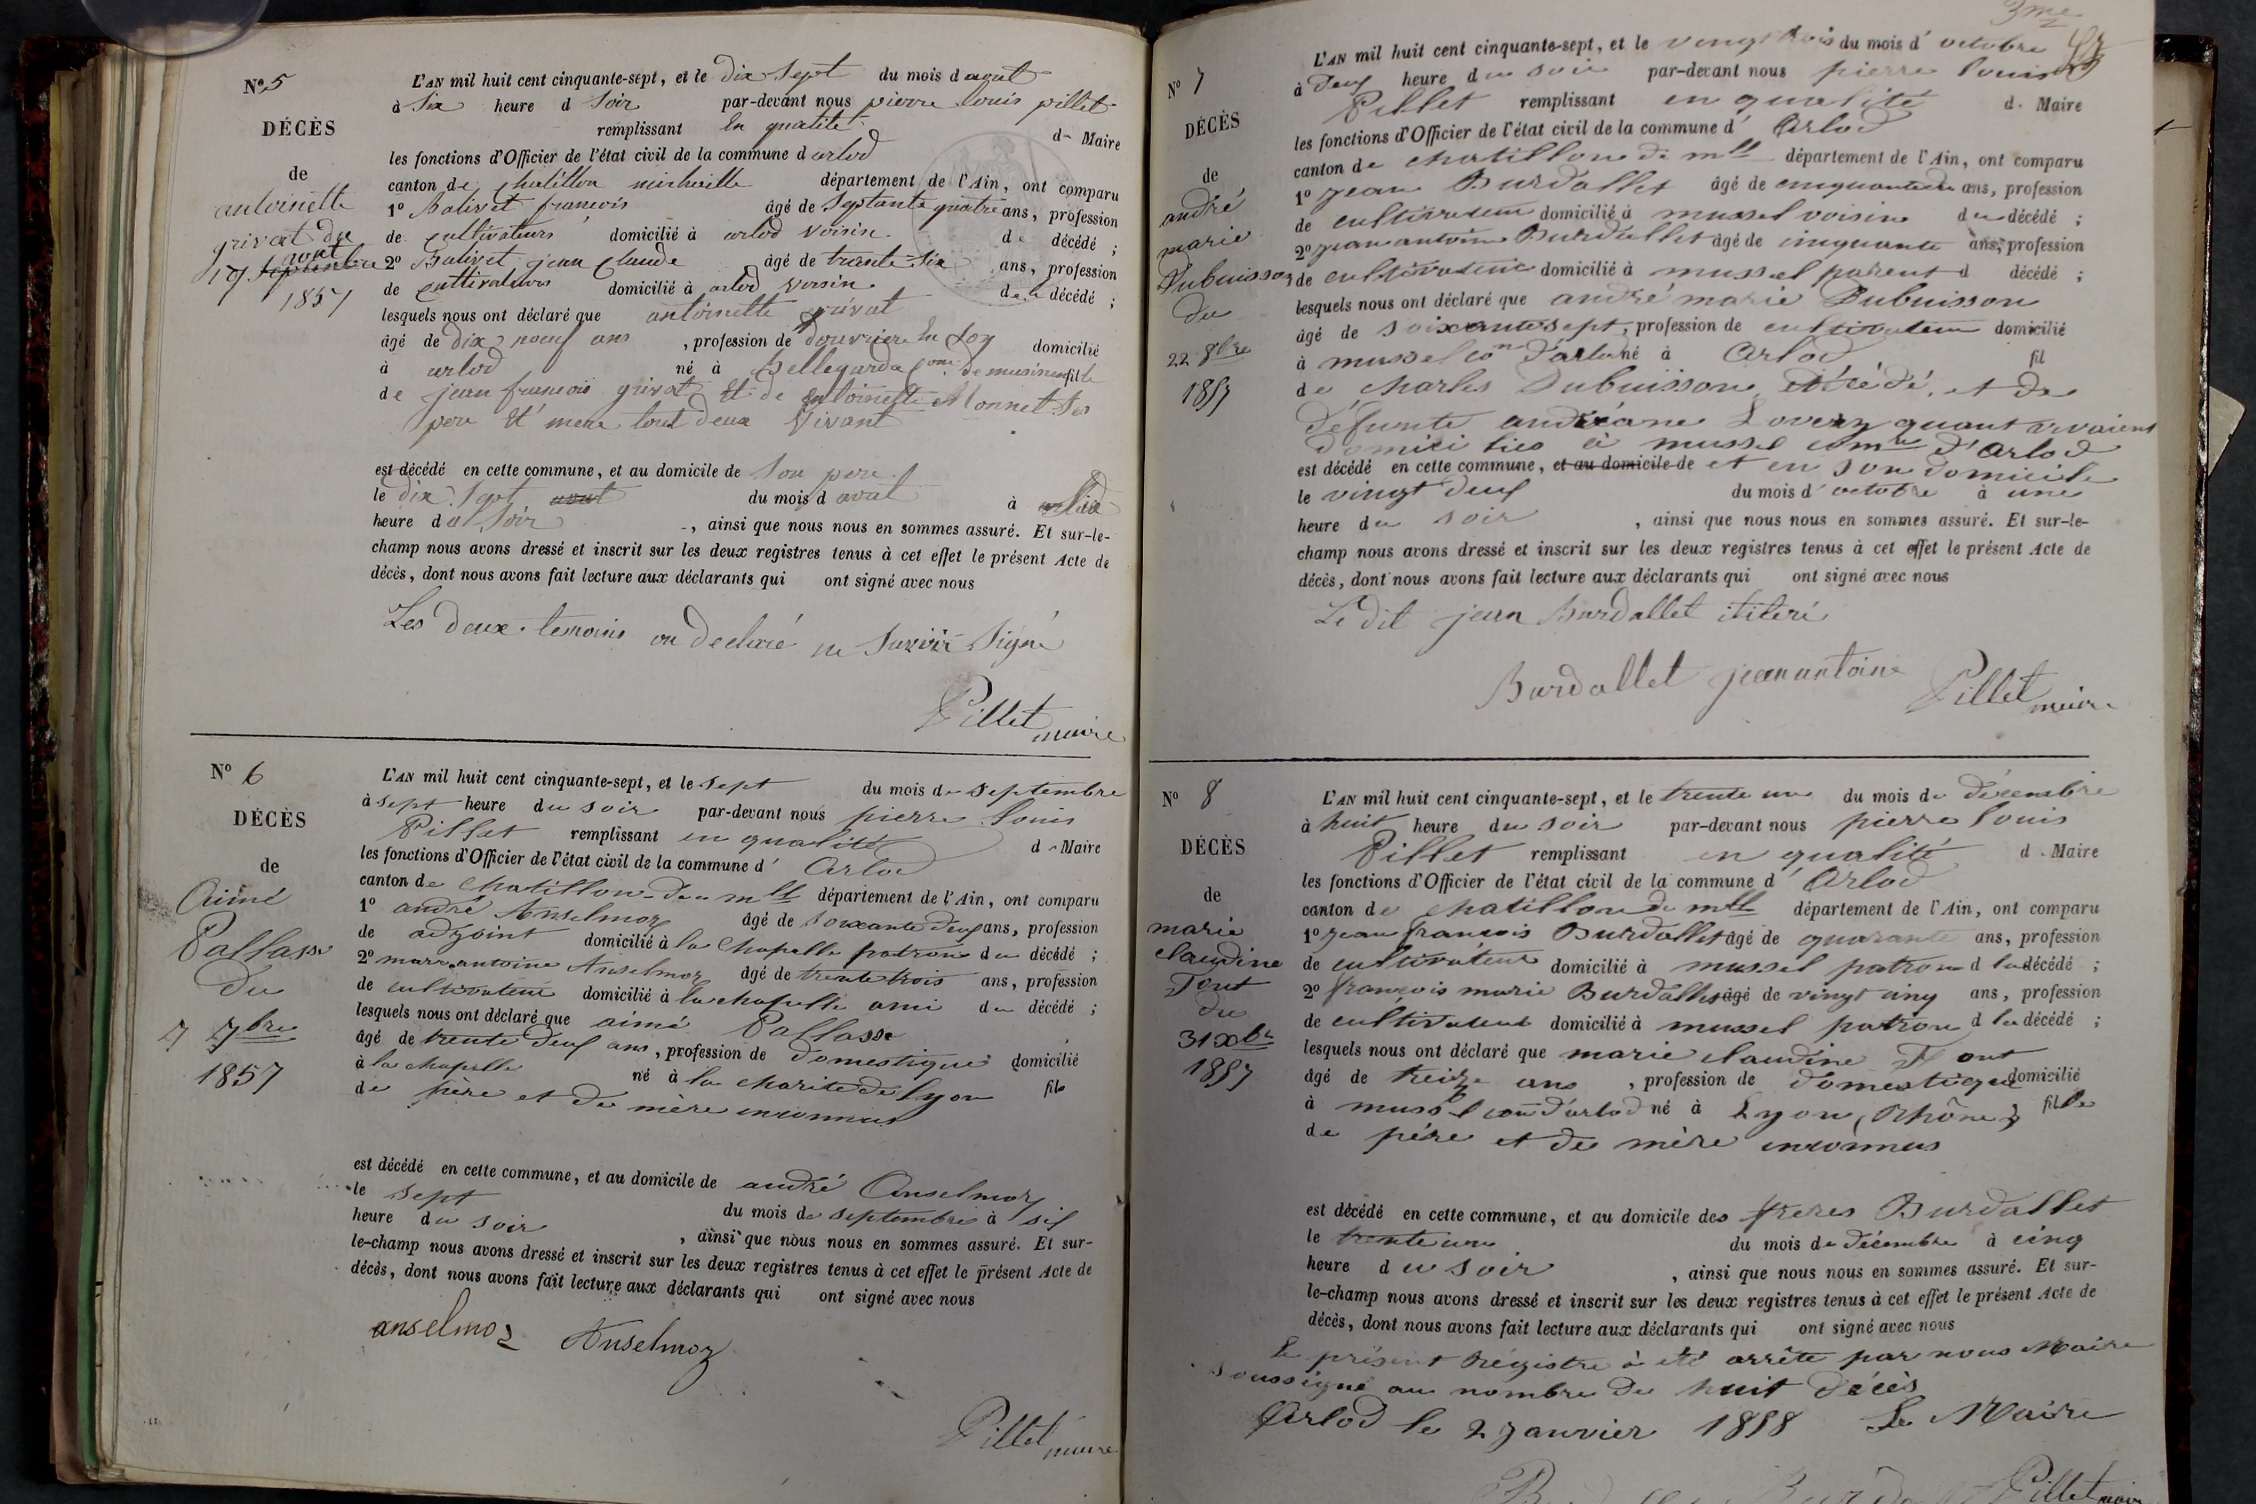 No 5
DÉCÈS
de
antoinette
grivat du
aout
17 septembre
1857
L'AN mil huit cent cinquante-sept, et le dix sept du mois d aout
à Six heure d Soir par-devant nous pierre louis pillet
remplissant en qualité de Maire
les fonctions d'Officier de l'état civil de la commune d arlod
canton de chatillon michaille département de l'Ain, ont comparu
1º Balivet francois âgé de Septante quatre ans, profession
de cultivateurs domicilié à arlod voisin de décédé ;
2º Balivet jean Claude âgé de trente Six ans, profession
de cultivateurs domicilié à arlod voisin de la décédé ;
lesquels nous ont déclaré que antoinette grivat
âgé de dix neuf ans, profession de douvriere en Soy domicilié
à arlod né à Bellegarde Com. de musinens fille
de jean francois grivat Et de antoinette Monnet Ses
pere Et mere tout deux Vivant
est décédé en cette commune, et au domicile de Son pere
le dix Sept aout du mois d aout à
heure du Soir, ainsi que nous nous en sommes assuré. Et sur-le-
champ nous avons dressé et inscrit sur les deux registres tenus à cet effet le présent Acte de
décès, dont nous avons fait lecture aux déclarants qui ont signé avec nous
Les deux temoins on declaré ne Savoir Signé
Pillet maire
No 6
DÉCÈS
de
Aimé
Pallasse
du
7 7bre
1857
L'AN mil huit cent cinquante-sept, et le sept du mois de septembre
à sept heure du soir par-devant nous pierre louis
Pillet remplissant en qualité de Maire
les fonctions d'Officier de l'état civil de la commune d' Arlod
canton de Chatillon de mlle département de l'Ain, ont comparu
1º andré Anselmoz âgé de soixante deux ans, profession
de adjoint domicilié à la Chapelle patron du décédé ;
2º marc antoine Anselmoz âgé de trente trois ans, profession
de cultivateur domicilié à la chapelle ami du décédé ;
lesquels nous ont déclaré que aimé Pallasse
âgé de trente deux ans, profession de domestique domicilié
à la chapelle né à la charité de lyon fils
de père et de mère inconnus
est décédé en cette commune, et au domicile de andré Anselmoz
le sept du mois de septembre à six
heure du soir, ainsi que nous nous en sommes assuré. Et sur-
le-champ nous avons dressé et inscrit sur les deux registres tenus à cet effet le présent Acte de
décès, dont nous avons fait lecture aux déclarants qui ont signé avec nous
anselmoz Anselmoz
Pillet maire
3me
No 7
DÉCÈS
de
andré
marie
Dubuisson
du
22 8bre
1857
L'AN mil huit cent cinquante-sept, et le vingt trois du mois d' octobre
à deux heure du soir par-devant nous pierre louis
Pillet remplissant en qualité de Maire
les fonctions d'Officier de l'état civil de la commune d' Arlod
canton de chatillon de mlle département de l'Ain, ont comparu
1º jean Burdallet âgé de ans, profession
de cultivateur domicilié à mussel voisin du décédé ;
2º jean antoine Burdallet âgé de cinquante ans, profession
de cultivateur domicilié à mussel parent d décédé ;
lesquels nous ont déclaré que andré marie Dubuisson
âgé de soixante sept, profession de cultivateur domicilié
à mussel con d'arlod né à Arlod fil
de charles Dubuisson et de
défunte andréane quant vivaient
domiciliés à mussel comne d'Arlod
est décédé en cette commune, et au domicile de et en son domicile
le vingt deux du mois d' octobre à une
heure du soir, ainsi que nous nous en sommes assuré. Et sur-le-
champ nous avons dressé et inscrit sur les deux registres tenus à cet effet le présent Acte de
décès, dont nous avons fait lecture aux déclarants qui ont signé avec nous
Le dit jean Burdallet ititeré
Burdallet jean antoine Pillet maire
No 8
DÉCÈS
de
marie
claudine
Font
du
31 Xbre
1857
L'AN mil huit cent cinquante-sept, et le trente un du mois de décembre
à huit heure du soir par-devant nous pierre louis
Pillet remplissant en qualité de Maire
les fonctions d'Officier de l'état civil de la commune d' Arlod
canton de chatillon de mlle département de l'Ain, ont comparu
1º jean françois Burdallet âgé de quarante ans, profession
de cultivateur domicilié à mussel patron d la décédé ;
2º françois marie Burdallet âgé de vingt cinq ans, profession
de cultivateur domicilié à mussel patron d la décédé ;
lesquels nous ont déclaré que marie claudine Font
âgé de treize ans, profession de domestique domicilié
à mussel con d'arlod né à Lyon (Rhône) fille
de père et de mère inconnus
est décédé en cette commune, et au domicile des freres Burdallet
le trente un du mois de décembre à cinq
heure du soir, ainsi que nous nous en sommes assuré. Et sur-
le-champ nous avons dressé et inscrit sur les deux registres tenus à cet effet le présent Acte de
décès, dont nous avons fait lecture aux déclarants qui ont signé avec nous
le présent Régistre à été arrête par nous Maire
soussigné au nombre de huit décès
Arlod le 2 janvier 1858 Le Maire
Pillet maire